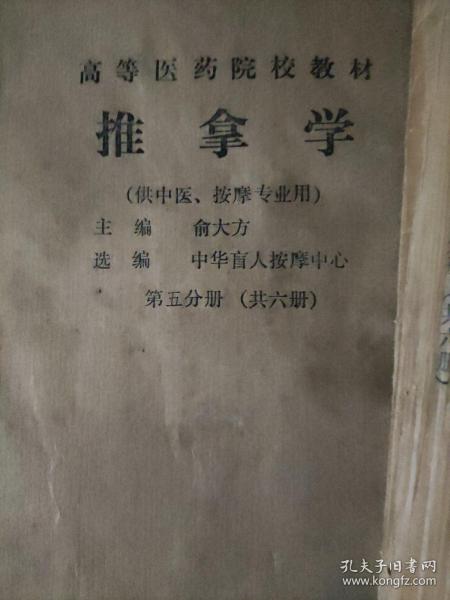 高等医药院校教材
推拿学
(供中医、按摩专业用)
主编 俞大方
选编 中华盲人按摩中心
第五分册 (共六册)
共六册)
孔夫子旧书网
www.kongfz.com